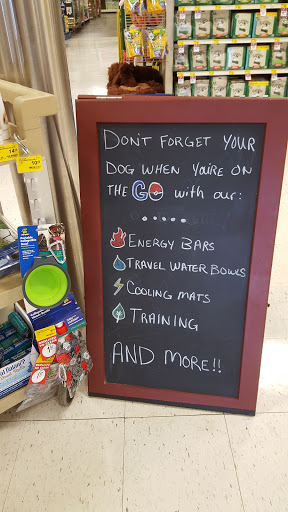 DON'T FORGET YOUR
DOG WHEN YOU'RE ON
THE GO with our:
ENERGY BARS
TRAVEL WATER BOWLS
COOLING MATS
TRAINING
AND MORE!!